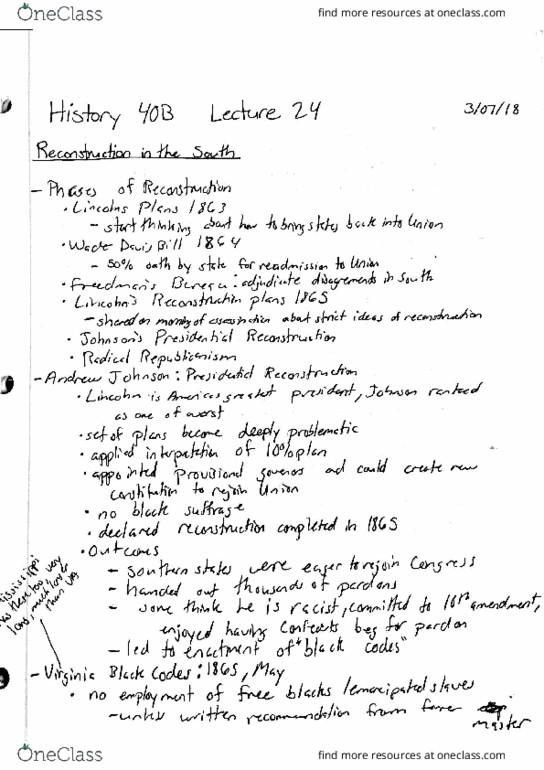 OneClass
find more resources at oneclass.com
History 40B Lecture 24 3/07/18
Reconstruction in the South
- Phases of Reconstruction
• Lincolns Plans 1863
- start thinking about how to bring states back into Union
• Wade Davis Bill 1864
- 50% oath by state for readmission to Union
• Freedman's Bereau: adjudicate disagrements in South
• Lincohn's Reconstruction plans 1865
- shared on morning of assassination about strict ideas of reconstruction
• Johnson's Presidential Reconstruction
• Radical Republicanism
- Andrew Johnson: Presidential Reconstruction
• Lincoln is Americas greatest president, Johnson ranked
as one of worst
• set of plans become deeply problematic
• applied interpretation of 10% plan
• appointed provisional governors and could create new
constitution to rejoin Union
• no black suffrage
• declared reconstruction completed in 1865
• Outcomes
- Southern states were eager to rejoin Congress
- handed out thousands of pardons
- some think he is racist, committed to 10th amendment,
enjoyed having beg for pardon
- led to enactment of "black codes"
Mississippi
very
much
than
- Virginia Black Codes: 1865, May
• no employment of free blacks/emancipated slaves
- unless written recommendation from
master
OneClass
find more resources at oneclass.com